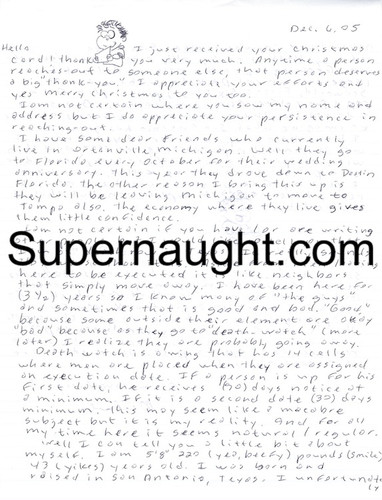 Dec. 6, 05
Hello I just received your Christmas
card! Thank you very much. Anytime a person
reaches-out to someone else, that person deserves
a big "thank-you." I appreciate your efforts and
yes merry Christmas to you too.
I am not certain where you saw my name and
address but I do appreciate your persistence in
reaching-out.
I have some dear friends who currently
live in Ortonville, Michigan. Well they go
to Florida every October for their wedding
anniversary. This year they drove down to Destin
Florida. The other reason I bring this up is
they will be leaving Michigan to move to
Tampa also. The economy where they live gives
them little confidence.
I am not certain if you have or are writing
Supernaught.com
here to be executed it's like neighbors
that simply move away. I have been here for
(3½) years so I know many of "the guys"
and sometimes that is good and bad. "Good,"
because some outside their element are okay
"bad" because as they go to "death-watch" (more
later) I realize they are probably going away.
Death watch is a wing that has 14 cells
where men are placed when they are assigned
an execution date. If a person is up for his
first date, he receives (90) days notice at
a minimum. If it is a second date (30) days
minimum. This may seem like a macabre
subject but it is my reality. And, for all
my time here it seems natural/regular.
Well I can tell you a little bit about
myself. I am 5'8" 220 (yea, beefy) pounds (smile)
43 (yikes) years old. I was born and
raised in San Antonio, Texas. I unfortunately